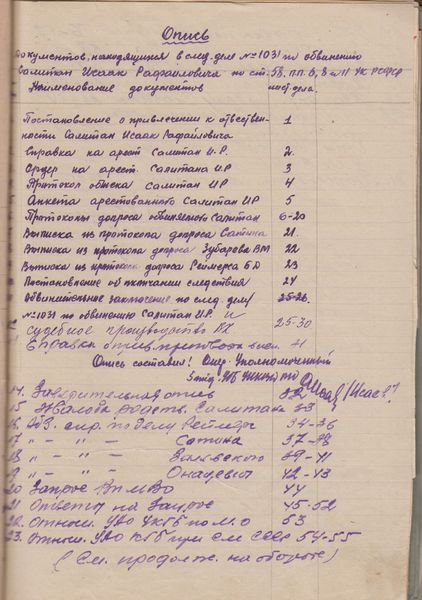 Опись
документов, находящихся в след. деле № 1031 по обвинению
Салитан Исаак Рафаиловича по ст. 58 п.п. 6, 8 и 11 УК РСФСР
Наименование документов лист. дела.
Постановление о привлечении к ответствен- 1
ности Салитан Исаак Рафаиловича
Справка на арест Салитан И.Р. 2.
Ордер на арест. Салитана И.Р 3
Протокол обыска Салитан И.Р 4
Анкета арестованного Салитан И.Р 5
Протоколы допроса обвиняемого Салитан 6-20
Выписка из протокола допроса Сатина 21.
Выписка из протокола допроса Зубарева ВМ 22
Выписка из протокола допроса Реймерса БД 23
Постановление об окончании следствия 24
Обвинительное заключение по след. делу 25-26.
№ 1031 по обвинению Салитан И.Р. и
судебное производство ВК 25-30
Справка о прив. приговора в исп. 31
Опись составил: Опер. Уполномоченный
14. Заверительная опись 32
15 Жалоба родств. Салитан 33
16 Обз. спр. по делу Реймерс 34-36
17 " - " - Сатина 37-38
18 " - " 39-41
19 " - " Онацевич 42-43
20 Запрос ВП МВО 44
21 Ответы на Запрос 45-52
22. Отнош. УВО УКГБ по М.О 53
23. Отнош. УВО КГБ при СМ СССР 54-55
(См. продолж. на обороте)